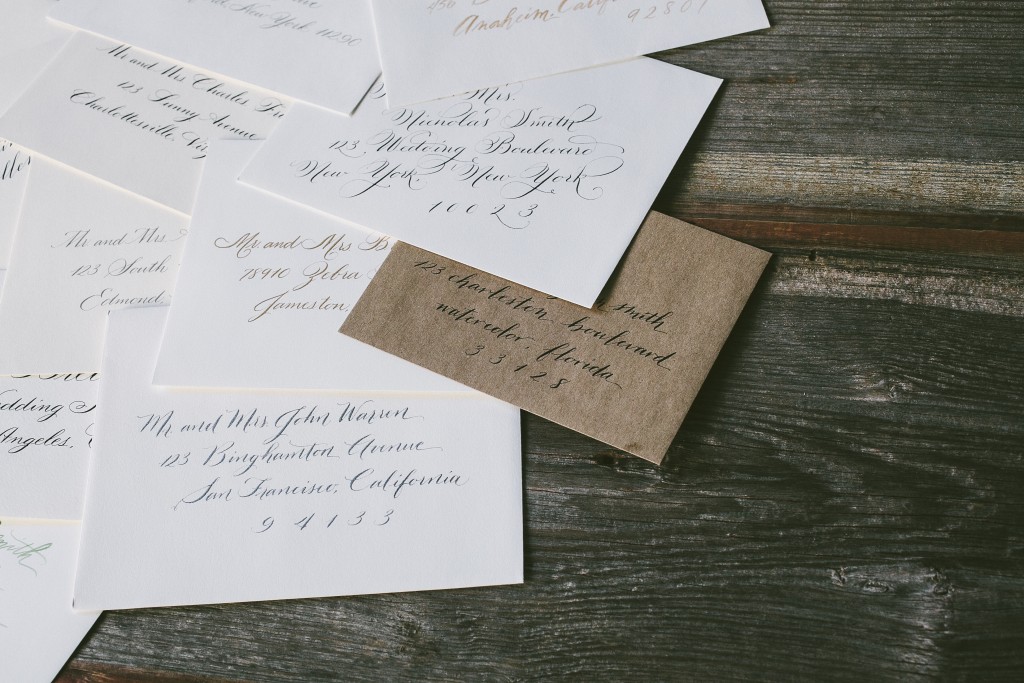 New York 11290
Anaheim, Calif
92801
Mr and Mrs Charles
123 Sunny Avenue
Charlottesville,
Mrs.
Nicholas Smith
123 Wedding Boulevard
New York, New York
10023
Mr and Mrs
123 South
Edmond,
Mr and Mrs B
78910 Zebra
Jameston,
smith
123 charleston boulevard
watercolor, florida
33128
Angeles,
Mr and Mrs John Warren
123 Binghamton Avenue
San Francisco, California
94133